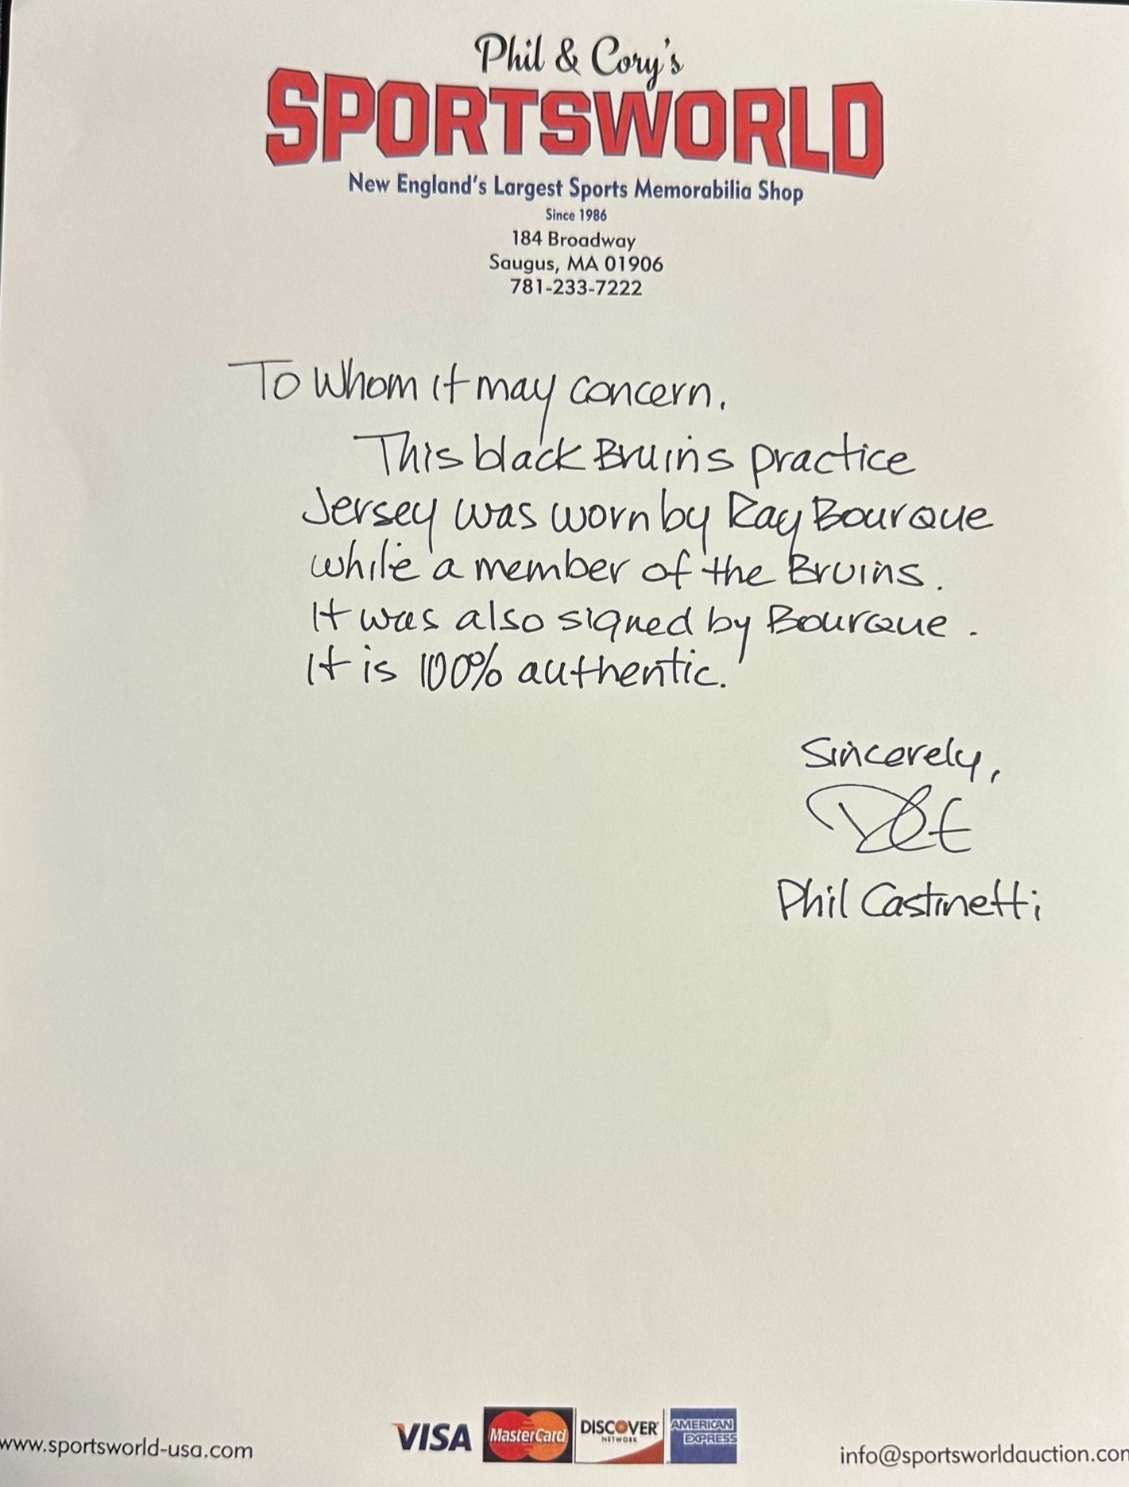 Phil & Cory's
SPORTSWORLD
New England's Largest Sports Memorabilia Shop
Since 1986
184 Broadway
Saugus, MA 01906
781-233-7222
To Whom it may concern.
This black Bruins practice
Jersey was worn by Ray Bourque
while a member of the Bruins.
It was also signed by Bourque.
It is 100% authentic.
Sincerely,
Phil Castinetti
www.sportsworld-usa.com
VISA MasterCard DISCOVER NETWORK AMERICAN EXPRESS
info@sportsworldauction.com